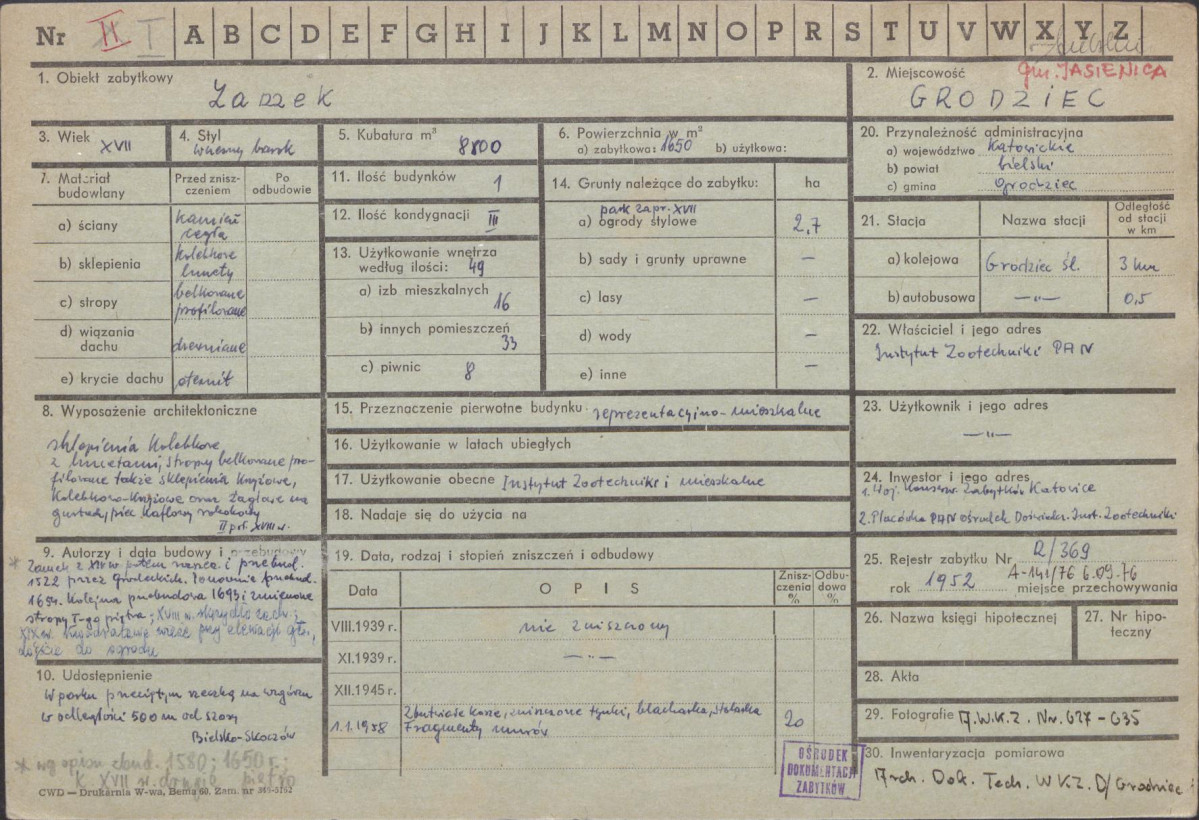 Nr II I A B C D E F G H I J K L M N O P R S T U V W X Y Z
gm. JASIENICA
1. Obiekt zabytkowy
Zamek
2. Miejscowość
GRODZIEC
3. Wiek XVII
4. Styl
wczesny barok
5. Kubatura m³ 8800
6. Powierzchnia w m²
a) zabytkowa: 1650 b) użytkowa:
20. Przynależność administracyjna
a) województwo Katowickie
b) powiat bielski
c) gmina Grodziec
7. Materiał budowlany
Przed zniszczeniem
Po odbudowie
a) ściany kamień cegła
b) sklepienia kolebkowe lunety
c) stropy belkowane profilowane
d) wiązania dachu drewniane
e) krycie dachu eternit
11. Ilość budynków 1
12. Ilość kondygnacji III
13. Użytkowanie wnętrza
według ilości: 49
a) izb mieszkalnych 16
b) innych pomieszczeń 33
c) piwnic 8
14. Grunty należące do zabytku: ha
park zapr. XVII
a) ogrody stylowe 2,7
b) sady i grunty uprawne –
c) lasy –
d) wody –
e) inne –
21. Stacja Nazwa stacji Odległość od stacji w km
a) kolejowa Grodziec śl. 3 km
b) autobusowa —"— 0,5
22. Właściciel i jego adres
Instytut Zootechniki PAN
23. Użytkownik i jego adres
—"—
24. Inwestor i jego adres
1. Woj. Konserw. Zabytków Katowice
2. Placówka PAN Ośrodek Doświadcz. Inst. Zootechniki
8. Wyposażenie architektoniczne
sklepienia kolebkowe
z lunetami, stropy belkowane pro-
filowane także sklepienia krzyżowe,
kolebkowo-krzyżowe oraz żaglaste na
gurtach, piec kaflowy rokokowy
II poł. XVIII w.
15. Przeznaczenie pierwotne budynku reprezentacyjno-mieszkalne
16. Użytkowanie w latach ubiegłych
17. Użytkowanie obecne Instytut Zootechniki i mieszkalne
18. Nadaje się do użycia na
9. Autorzy i data budowy i przebudowy
* Zamek z XIV w. potem wieża i przebud.
1522 przez Grodeckich. Ponownie przebud.
1654. Kolejna przebudowa 1693 i zmienione
stropy I-go piętra; XVIII w. skrzydło zach.;
XIX w. kwadratowa wieża przy elewacji gł.,
dojście do ogrodu
19. Data, rodzaj i stopień zniszczeń i odbudowy
Data OPIS Zniszczenia % Odbudowa %
VIII.1939 r. nie zniszczony
XI.1939 r. —"—
XII.1945 r.
1.1.1958 Zbutwiałe kosze, zniszczone tynki, blacharka, stolarka 20
Fragmenty murów
25. Rejestr zabytku Nr R/369
A-141/76 6.09.76
rok 1952 miejsce przechowywania
26. Nazwa księgi hipotecznej
27. Nr hipoteczny
28. Akta
29. Fotografie A.W.K.Z. Nr. 627-635
30. Inwentaryzacja pomiarowa
Arch. Dok. Tech. WKZ D/Grodziec
10. Udostępnienie
W parku przeciętym rzeczką na wzgórzu
w odległości 500 m od szosy
Bielsko-Skoczów
* wg opisu zbud. 1580; 1650 r.;
k. XVII w. drugie piętro
OŚRODEK
DOKUMENTACJI
ZABYTKÓW
CWD — Drukarnia W-wa, Bema 60. Zam. nr